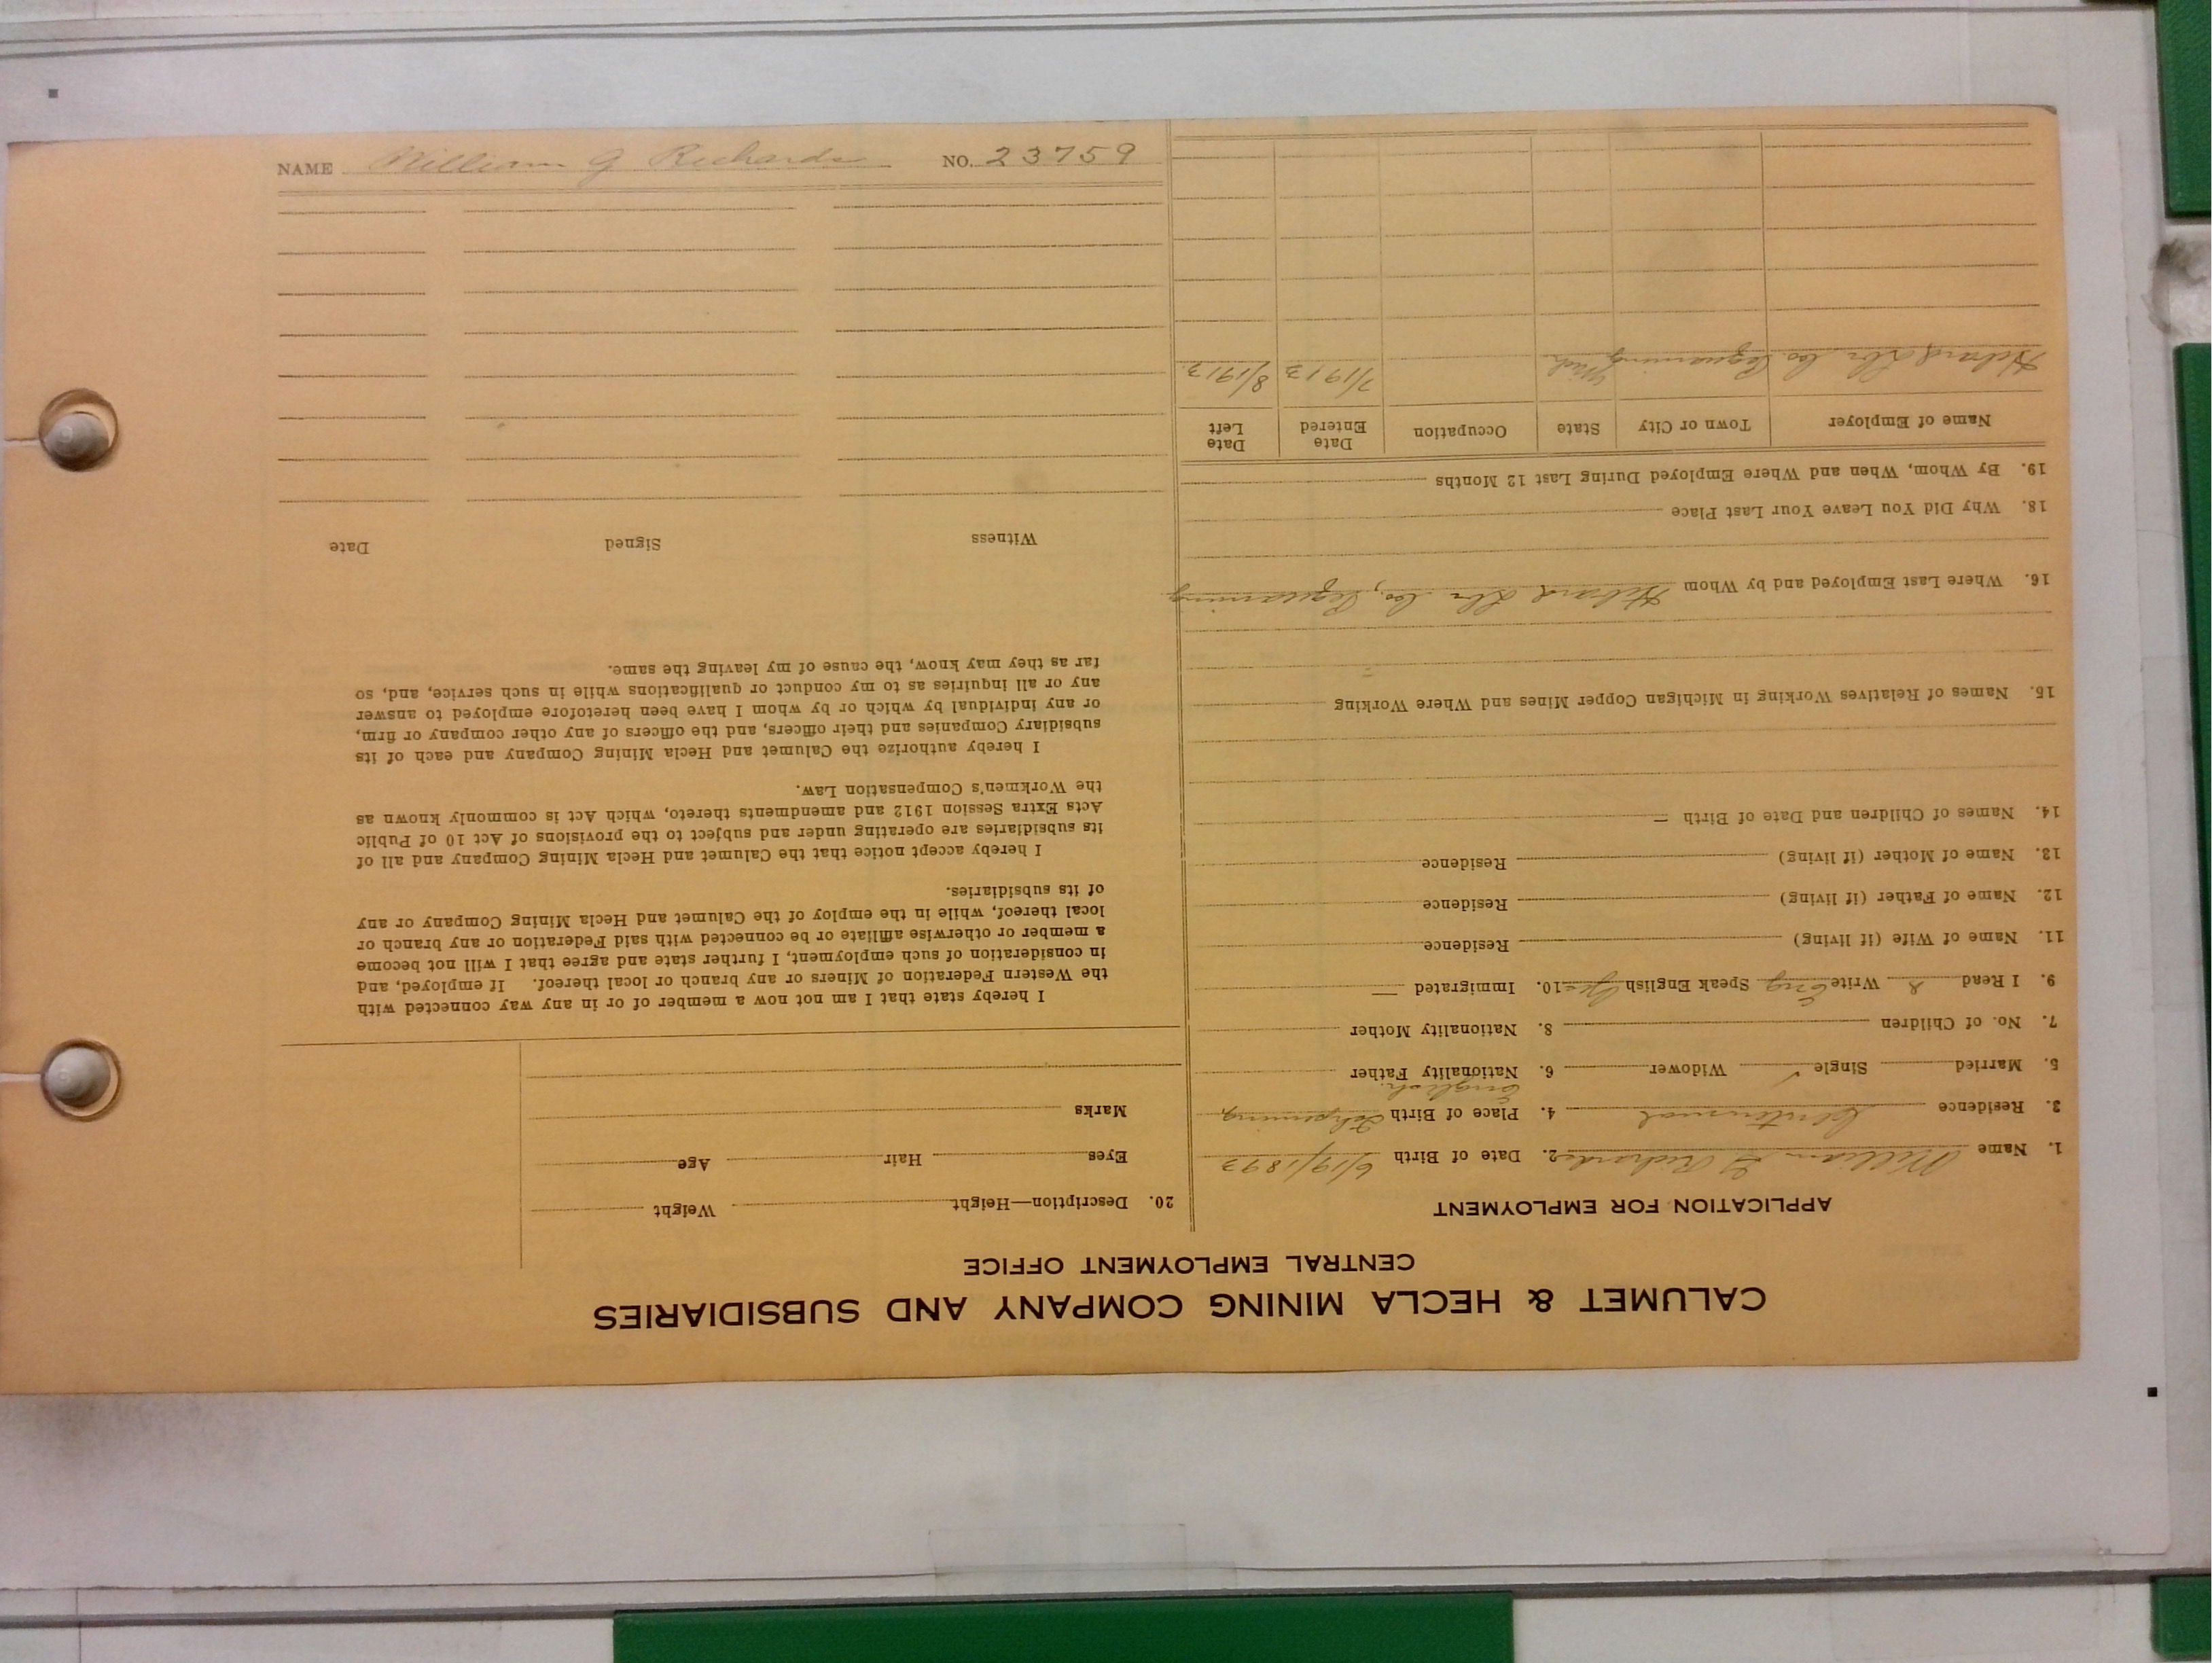 CALUMET & HECLA MINING COMPANY AND SUBSIDIARIES
CENTRAL EMPLOYMENT OFFICE
APPLICATION FOR EMPLOYMENT
1. Name William G Richards 2. Date of Birth 6/19/1893
3. Residence Centennial 4. Place of Birth Ishpeming
English
5. Married Single ✓ Widower 6. Nationality Father
7. No. of Children 8. Nationality Mother
9. I Read & Write Eng Speak English yes 10. Immigrated —
11. Name of Wife (if living) Residence
12. Name of Father (if living) Residence
13. Name of Mother (if living) Residence
14. Names of Children and Date of Birth —
15. Names of Relatives Working in Michigan Copper Mines and Where Working
16. Where Last Employed and by Whom Hebard Lbr Co, Pequaming
18. Why Did You Leave Your Last Place
19. By Whom, When and Where Employed During Last 12 Months
Name of Employer Town or City State Occupation Date Entered Date Left
Hebard Lbr Co. Pequaming Mich 7/1913 8/1913
20. Description—Height Weight
Eyes Hair Age
Marks
I hereby state that I am not now a member of or in any way connected with
the Western Federation of Miners or any branch or local thereof. If employed, and
in consideration of such employment, I further state and agree that I will not become
a member or otherwise affiliate or be connected with said Federation or any branch or
local thereof, while in the employ of the Calumet and Hecla Mining Company or any
of its subsidiaries.
I hereby accept notice that the Calumet and Hecla Mining Company and all of
its subsidiaries are operating under and subject to the provisions of Act 10 of Public
Acts Extra Session 1912 and amendments thereto, which Act is commonly known as
the Workmen's Compensation Law.
I hereby authorize the Calumet and Hecla Mining Company and each of its
subsidiary Companies and their officers, and the officers of any other company or firm,
or any individual by which or by whom I have been heretofore employed to answer
any or all inquiries as to my conduct or qualifications while in such service, and, so
far as they may know, the cause of my leaving the same.
Witness Signed Date
NAME William G Richards NO. 23759